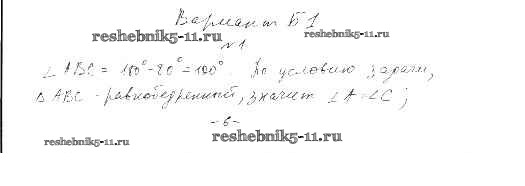 Вариант Б1
reshebnik5-11.ru reshebnik5-11.ru
№1.
∠ABC = 180°-80°=100°. По условию задачи,
△ABC - равнобедренный, значит ∠A=∠C;
-6-
reshebnik5-11.ru reshebnik5-11.ru